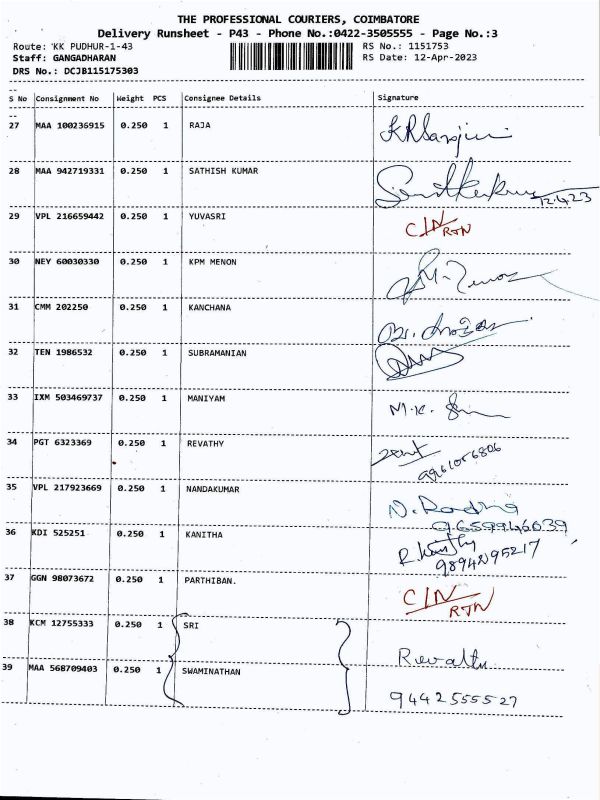 THE PROFESSIONAL COURIERS, COIMBATORE
Delivery Runsheet - P43 - Phone No.:0422-3505555 - Page No.:3
Route: KK PUDHUR-1-43 RS No.: 1151753
Staff: GANGADHARAN RS Date: 12-Apr-2023
DRS No.: DCJB115175303
S No Consignment No Weight PCS Consignee Details Signature
27 MAA 100236915 0.250 1 RAJA
28 MAA 942719331 0.250 1 SATHISH KUMAR 12.4.23
29 VPL 216659442 0.250 1 YUVASRI C/N RTN
30 NEY 60030330 0.250 1 KPM MENON
31 CMM 202250 0.250 1 KANCHANA
32 TEN 1986532 0.250 1 SUBRAMANIAN
33 IXM 503469737 0.250 1 MANIYAM M.K.
34 PGT 6323369 0.250 1 REVATHY
35 VPL 217923669 0.250 1 NANDAKUMAR N. Radha
9659946039
36 KDI 525251 0.250 1 KANITHA
9894295217
37 GGN 98073672 0.250 1 PARTHIBAN. C/N
RTN
38 KCM 12755333 0.250 1 SRI Revathi
39 MAA 568709403 0.250 1 SWAMINATHAN
9442555527